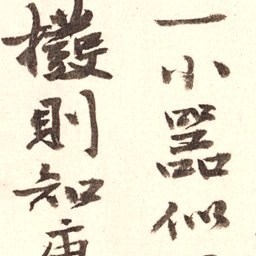 一小器似
撥則知